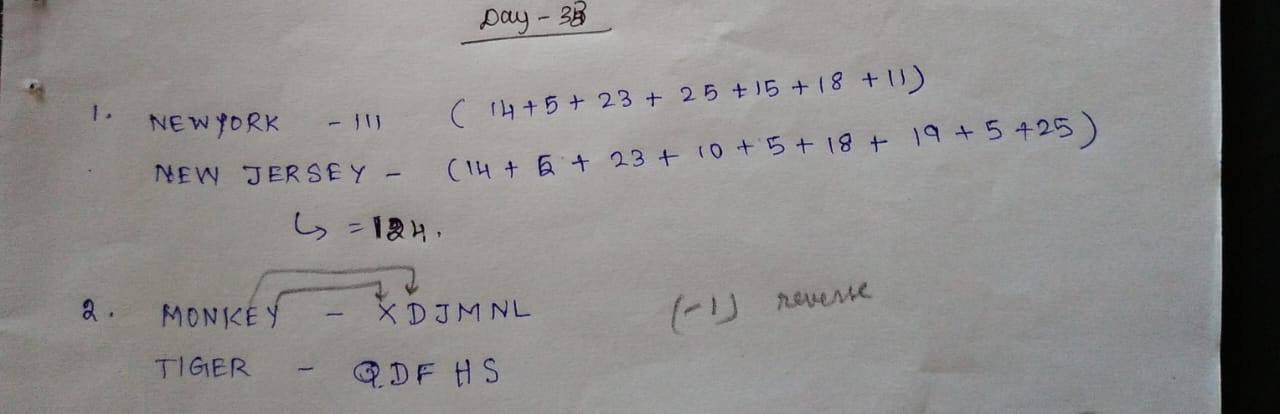 Day - 33
1. NEWYORK - 111 ( 14+5+ 23 + 25 +15 + 18 +11)
NEW JERSEY - (14 + 5 + 23 + 10 + 5 + 18 + 19 + 5 +25)
↳ = 124.
2. MONKEY - XDJMNL (-1) reverse
TIGER - QDFHS